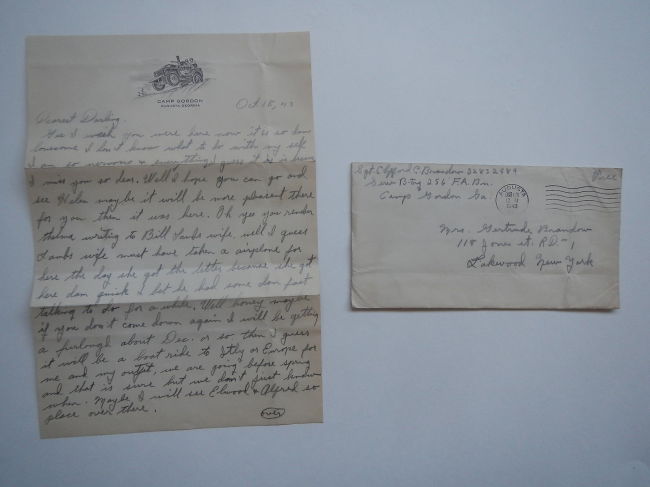 CAMP GORDON
AUGUSTA, GEORGIA
Oct 18, 43
Dearest Darling,
Gee I wish you were here now it is so
lonesome I don't know what to do with my self
I am so nervous & everything I guess it is
I miss you so dear. Well I hope you can go and
see Helen maybe it will be more pleasent there
for you then it was here. Oh yes you
thelma writing to Bill Lambs wife, well I guess
Lambs wife must have taken a airplane for
here the day she got the letter because she got
here dam quick I bet he had some dam fast
talking to do for a while. Well honey maybe
if you don't come down again I will be getting
a furlough about Dec. or so then I guess
it will be a boat ride to Itly or Europe for
me and my outfit, we are going before spring
and that is sure but we don't just know
when. Maybe I will see Elwood & Alfred so
place over there.
over
Sgt Clifford C. Brandow 32832889
Serv. B-try 256 F.A. Bn.
Camp Gordon Ga.
Free
AUGUSTA
1943
Mrs. Gertrude Brandow
118 Jones st. RD-1
Lakewood New York